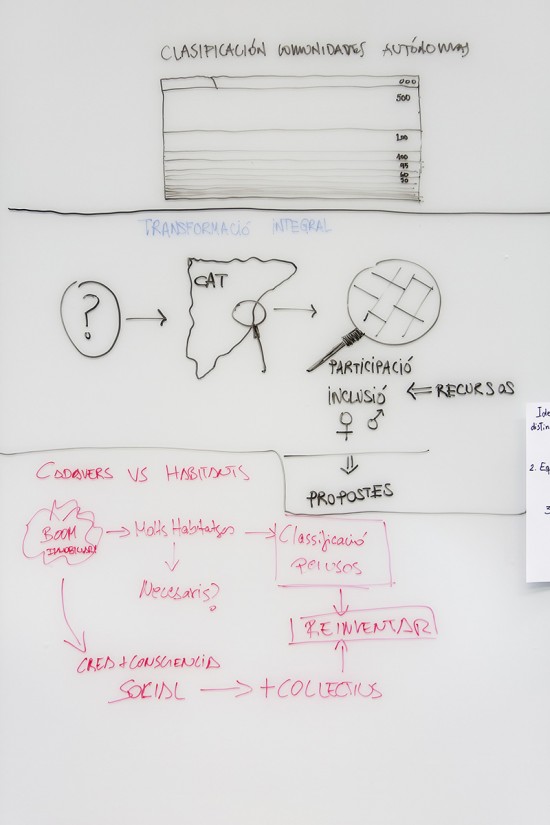 CLASIFICACIÓN COMUNIDADES AUTÓNOMAS
000
500
100
TRANSFORMACIÓ INTEGRAL
?
CAT
PARTICIPACIÓ
INCLUSIÓ
RECURSOS
PROPOSTES
CADAVERS VS HABITANTS
BOOM
IMMOBILIARI
Molts Habitatges
Necesaris?
Classificació
per usos
REINVENTAR
CREA + CONSCIENCIA
SOCIAL
+ COLLECTIUS
Ide
distin
2. Eq
3